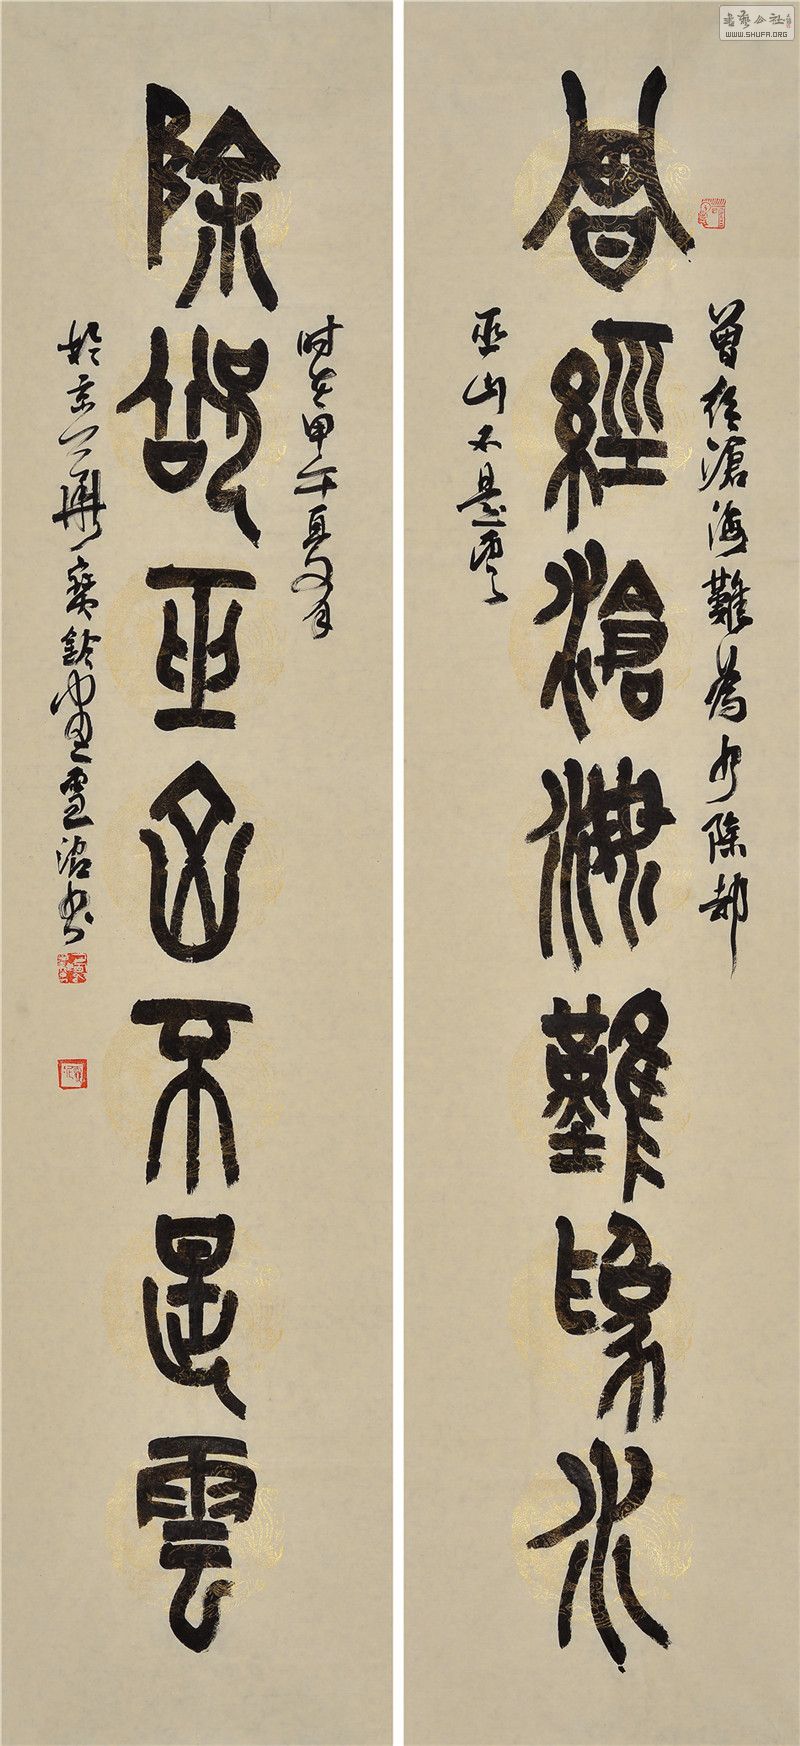 書藝公社
WWW.SHUFA.ORG
曾經滄海難為水
曾經滄海難為水除却
巫山不是雲
除卻巫山不是雲
時在甲午夏月
雪涛书